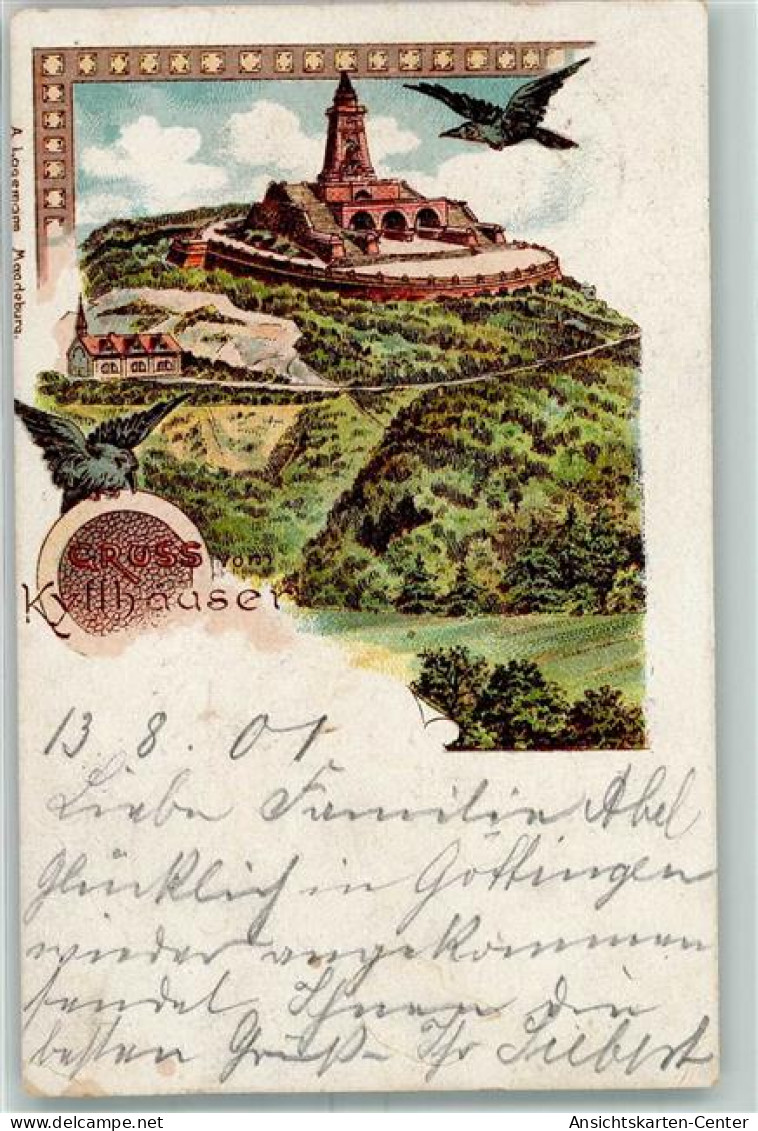 A. Lagemann, Magdeburg.
GRUSS vom
Kyffhäuser
13. 8. 01
Liebe Familie Abel
Glücklich in Göttingen
wieder angekommen
sendet Ihnen die
besten Grüße Ihr Siebert
Ansichtskarten-Center